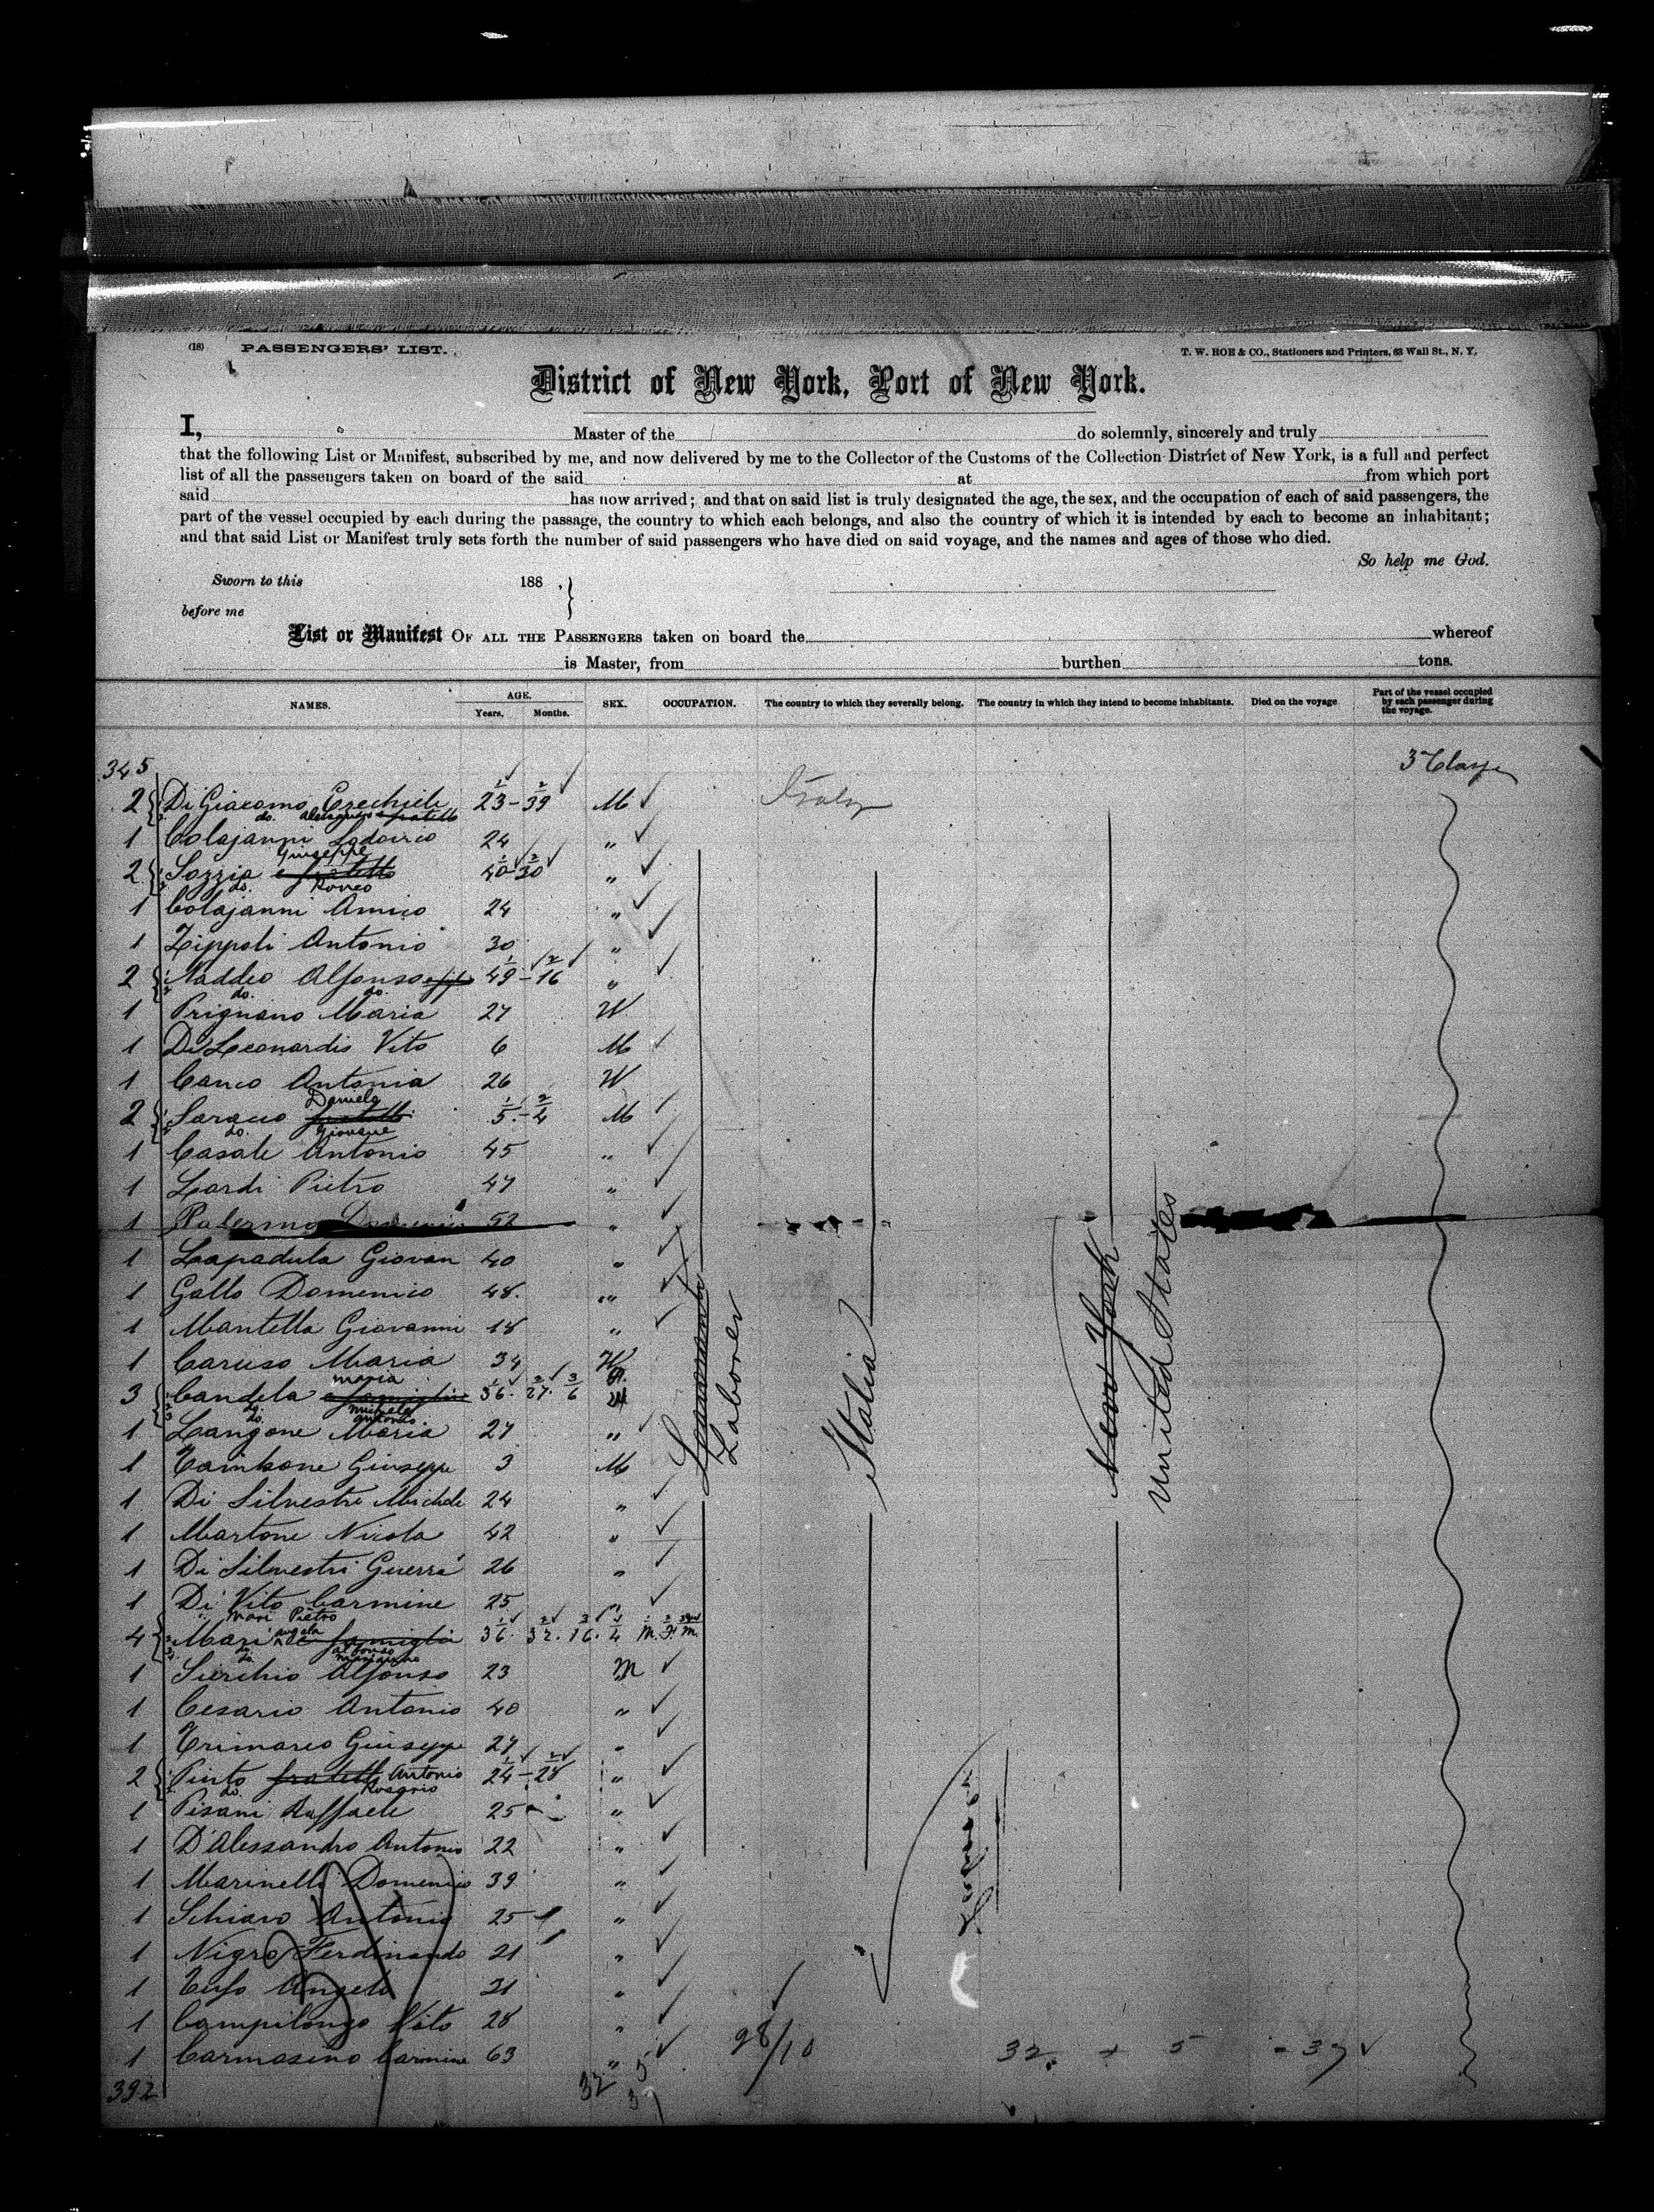 (18) PASSENGERS' LIST. T. W. ROE & CO., Stationers and Printers, 63 Wall St., N. Y.
District of New York, Port of New York.
I, Master of the do solemnly, sincerely and truly
that the following List or Manifest, subscribed by me, and now delivered by me to the Collector of the Customs of the Collection District of New York, is a full and perfect
list of all the passengers taken on board of the said at from which port
said has now arrived; and that on said list is truly designated the age, the sex, and the occupation of each of said passengers, the
part of the vessel occupied by each during the passage, the country to which each belongs, and also the country of which it is intended by each to become an inhabitant;
and that said List or Manifest truly sets forth the number of said passengers who have died on said voyage, and the names and ages of those who died.
So help me God.
Sworn to this 188 .
before me
List or Manifest OF ALL THE PASSENGERS taken on board the whereof
is Master, from burthen tons.
NAMES. AGE. Years. Months. SEX. OCCUPATION. The country to which they severally belong. The country in which they intend to become inhabitants. Died on the voyage Part of the vessel occupied by each passenger during the voyage.
345 3 Classe
2 Di Giacomo Ezechiele 23 - 39 M Italy
do. fratello
1 Colajanni Lodovico 24 "
Giuseppe
2 Sozzia e fratello 40 - 30 "
do. Rocco
1 Colajanni Amico 24 "
1 Zippoli Antonio 30 "
2 Naddeo Alfonso e figlio 49 - 16 "
do. do.
1 Prignano Maria 27 W
1 Di Leonardis Vito 6 M
1 Canco Antonia 26 W
Daniele
2 Saracco fratelli 5 - 4 M
do. Giovane
1 Casale Antonio 45 "
1 Lardi Pietro 47 "
1 Palermo 52 "
1 Lapadula Giovan 40 "
1 Gallo Domenico 48. "
1 Mantella Giovanni 18 "
1 Caruso Maria 34 W
maria
3 Candela e famiglia 36. 27. 6 M
do. michele
do. antonio
1 Langone Maria 27 "
1 Giuseppe 3 M
1 Di Silvestri Michele 24 "
1 Martone Nicola 42 "
1 Di Silvestri Guerra 26 "
1 Di Vito Carmine 25 "
Mari Pietro
4 Mari angela e famiglia 36. 32. 16. 4 M. F. M.
do. alfonso
do.
1 Sierchio Alfonso 23 M
1 Cesario Antonio 40 "
1 Trimarco Giuseppe 27 "
2 Pinto fratelli Antonio 24 - 28 "
do. Rosario
1 Pisani Raffaele 25 "
1 D'Alessandro Antonio 22 "
1 Marinelli Domenico 39 "
1 Schiavo Antonio 25 "
1 Nigro Ferdinando 21 "
1 Tufo Angelo 21 "
1 Campilongo Vito 28 "
1 Carmosino Carmine 63 "
392
Laborer
Italia
New York
United States
98/10
32 + 5 = 37
32 5
37